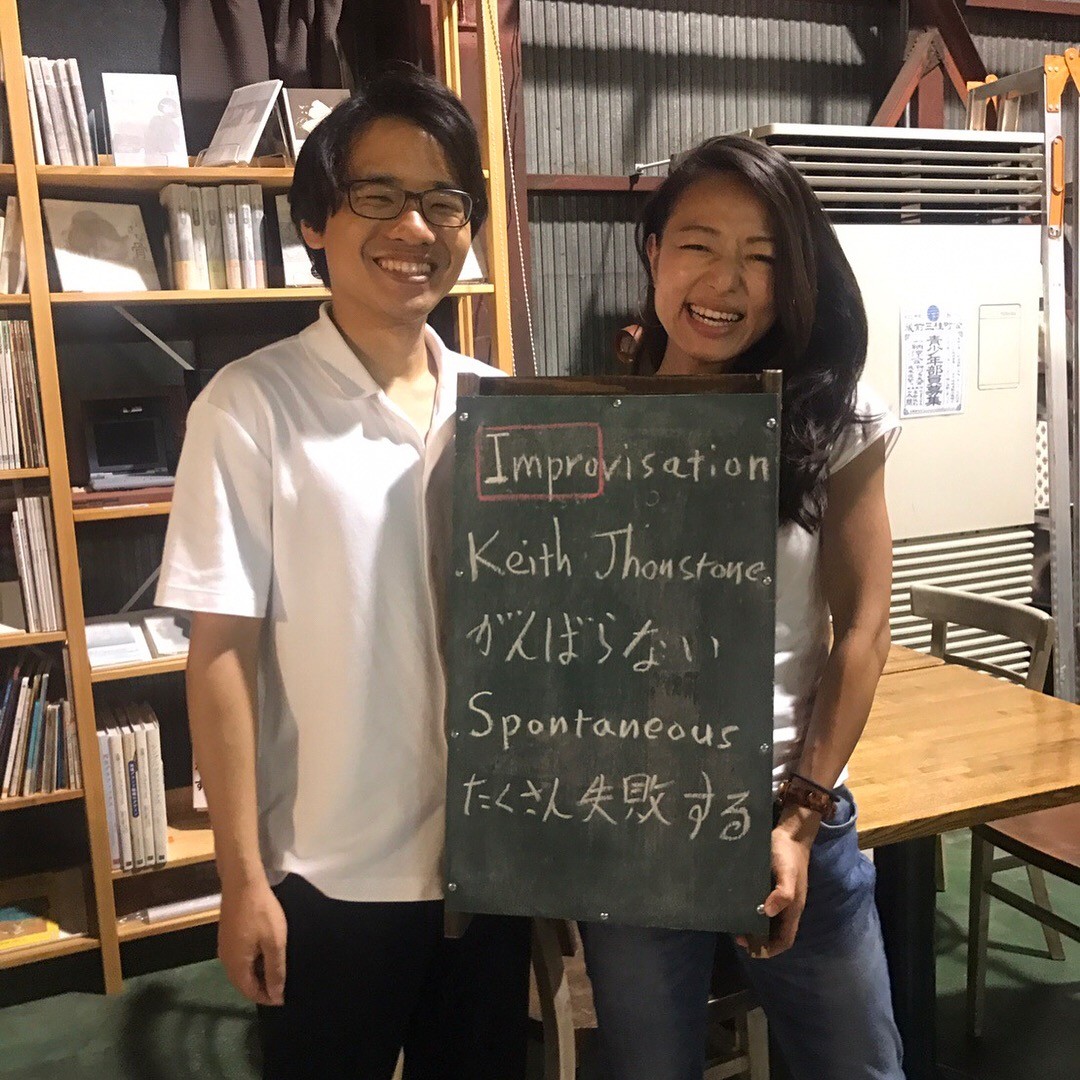 Improvisation
Keith Jhonstone
がんばらない
Spontaneous
たくさん失敗する
青少年部員募集